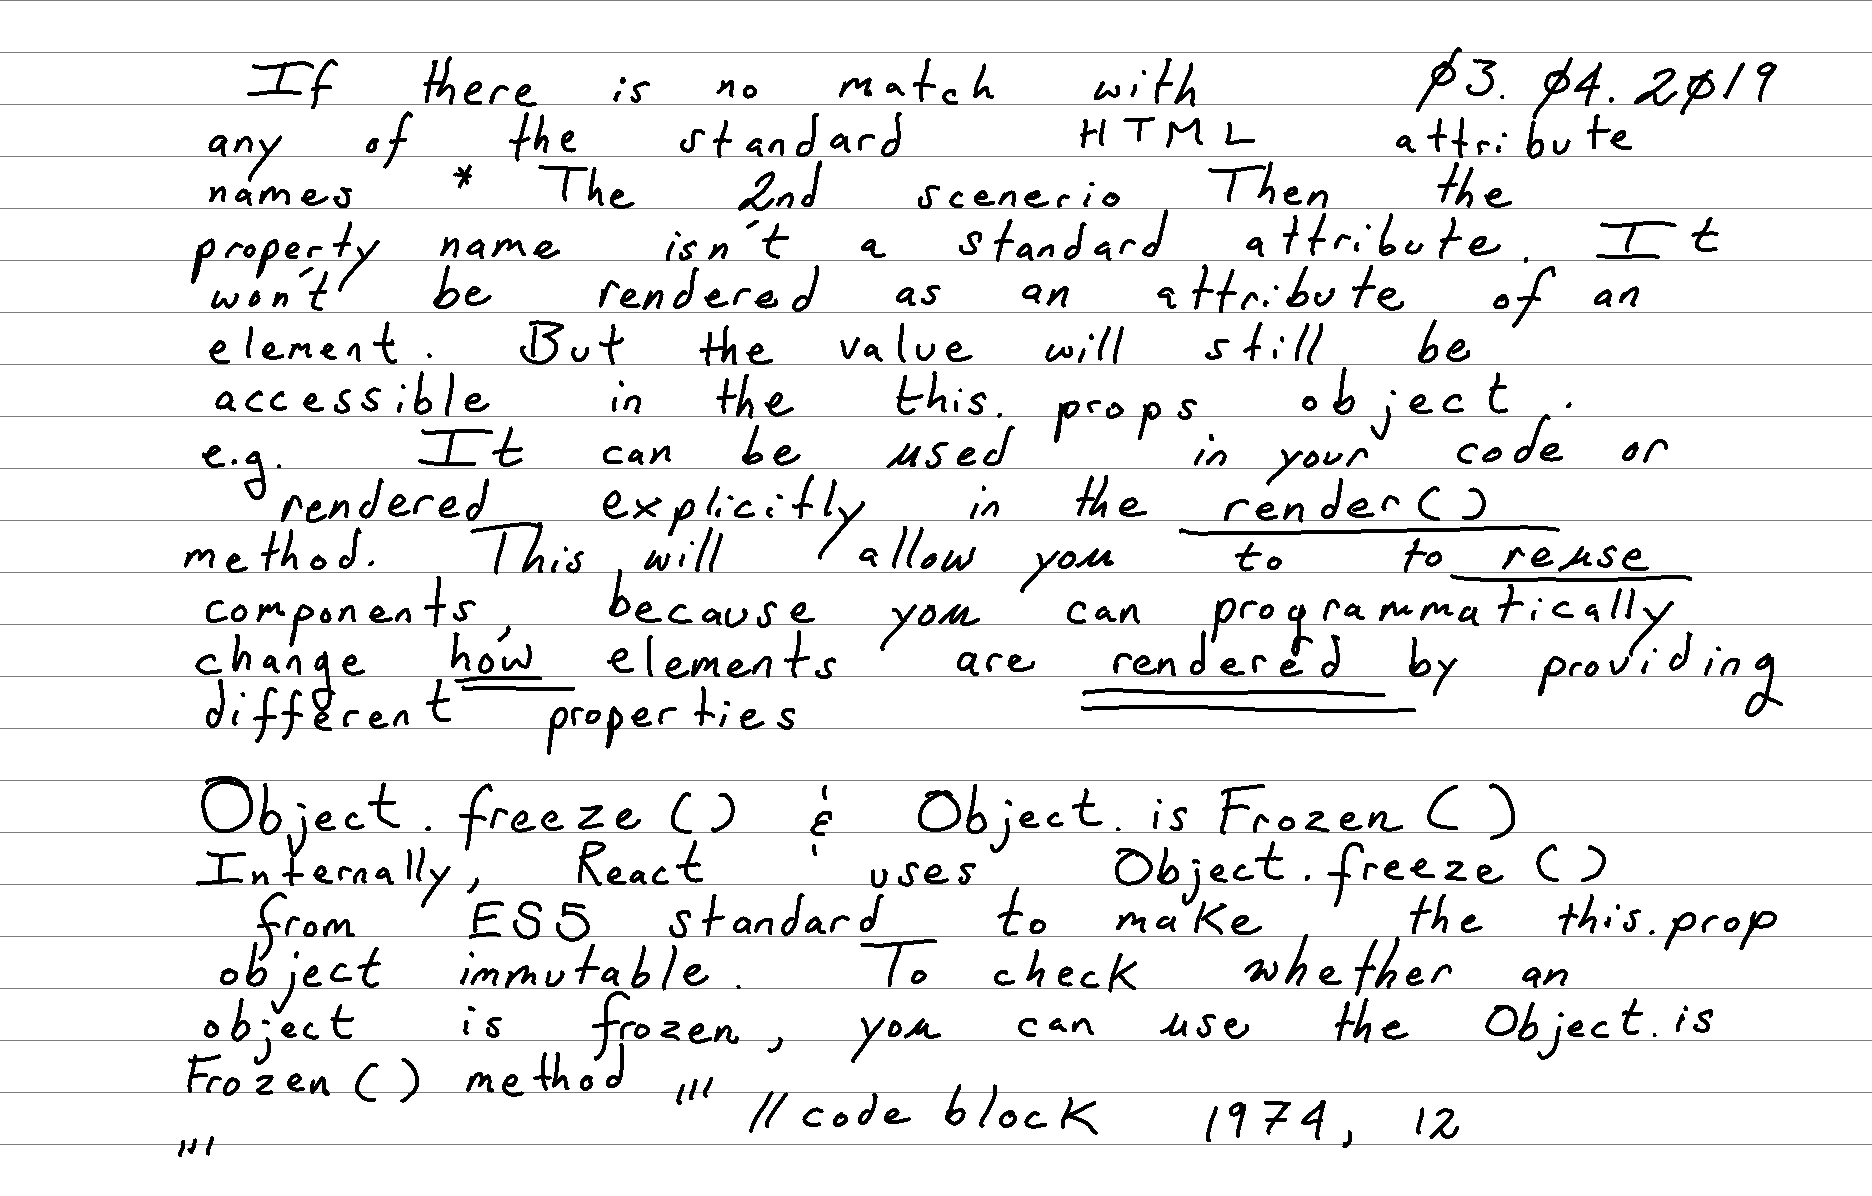 If there is no match with ø3. ø4. 2ø19
any of the standard HTML attribute
names * The 2nd scenerio Then the
property name isn't a standard attribute. It
won't be rendered as an attribute of an
element. But the value will still be
accessible in the this. props object.
e.g. It can be used in your code or
rendered explicitly in the render()
method. This will allow you to to reuse
components, because you can programmatically
change how elements are rendered by providing
different properties
Object.freeze() & Object.isFrozen()
Internally, React uses Object.freeze()
from ES5 standard to make the this.prop
object immutable. To check whether an
object is frozen, you can use the Object.is
Frozen() method '''
// code block 1974, 12
'''